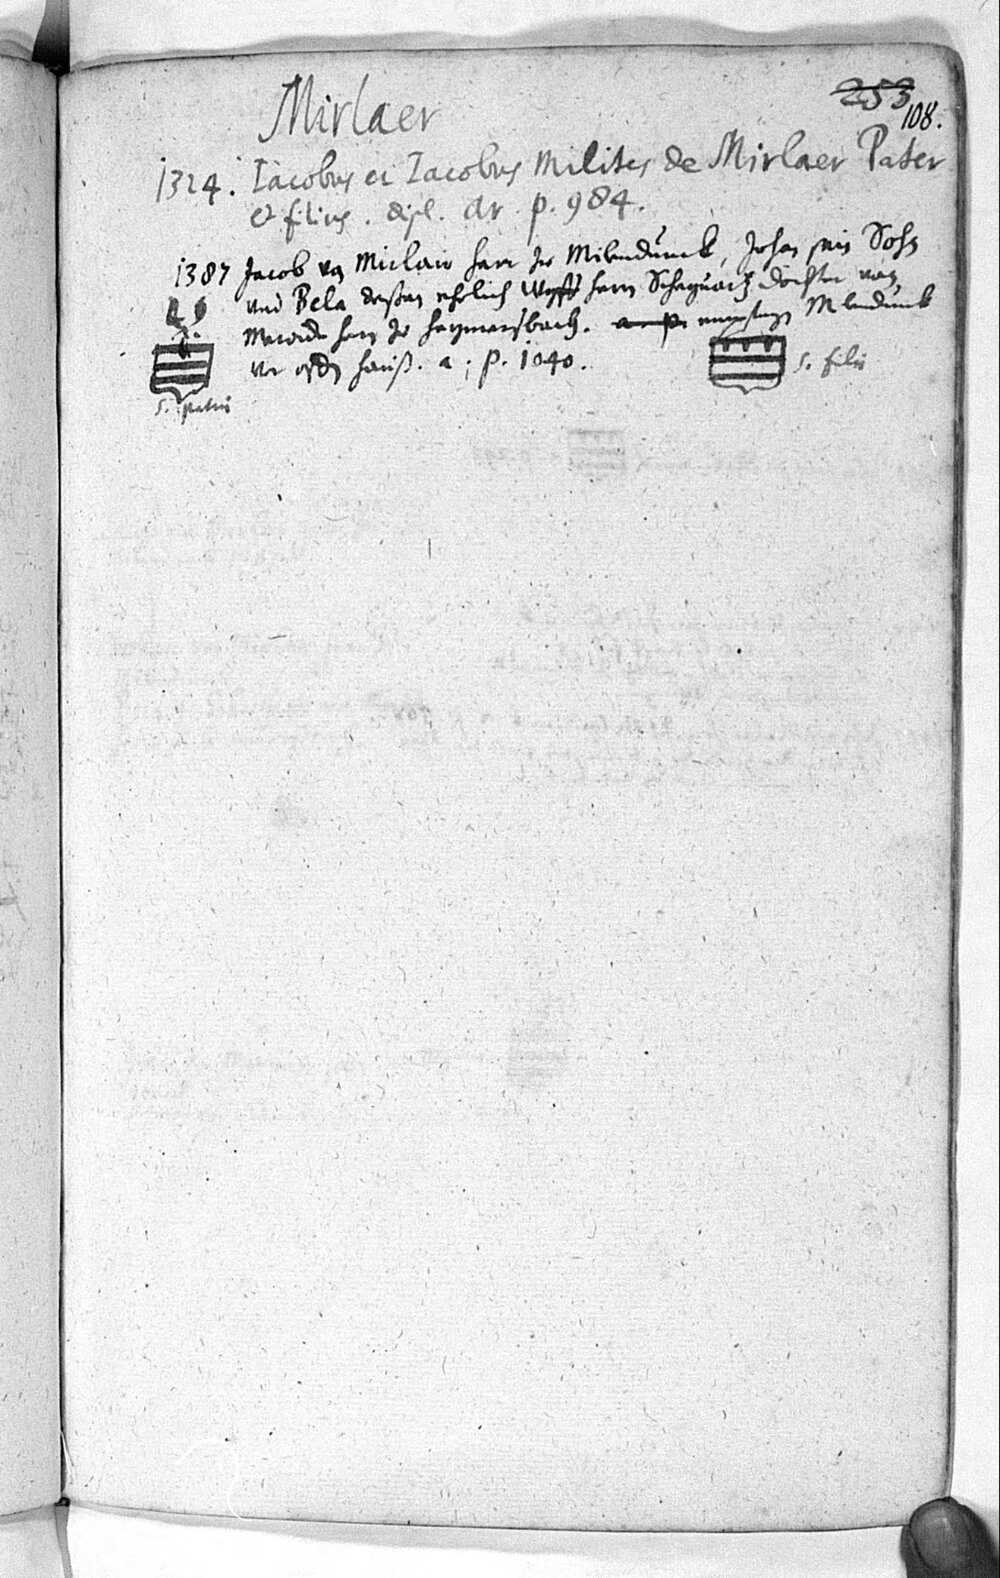 253
108.
Mirlaer
1324. Iacobus et Iacobus milites de Mirlaer Pater
et filius. dipl. Ar p. 984.
1387 Jacob von Mirlair herr zu Milendunck, Johan sein Sohn
und Bela dessen ehelich Wyff herrn Scheyuartz döchter van
Merode herr zu heymersbach.
Mlendunck
hauß. a; p. 1040.
s. patris
s. filii